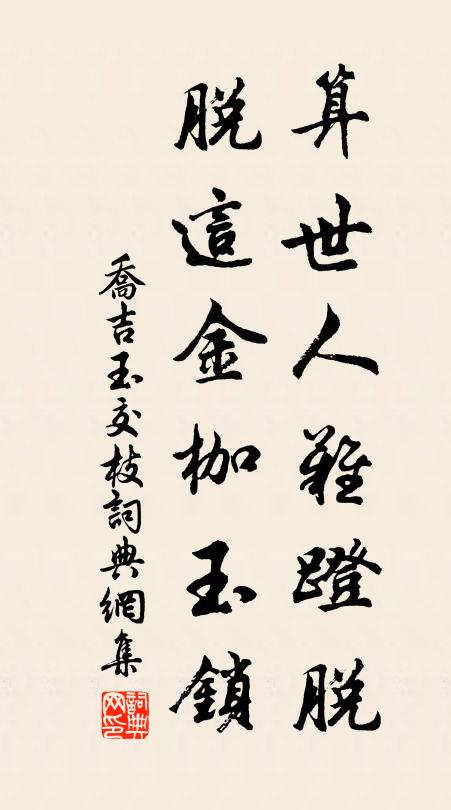 算世人難蹬脫
脫這金枷玉鎖
喬吉玉交枝詞典網集
詞典網印